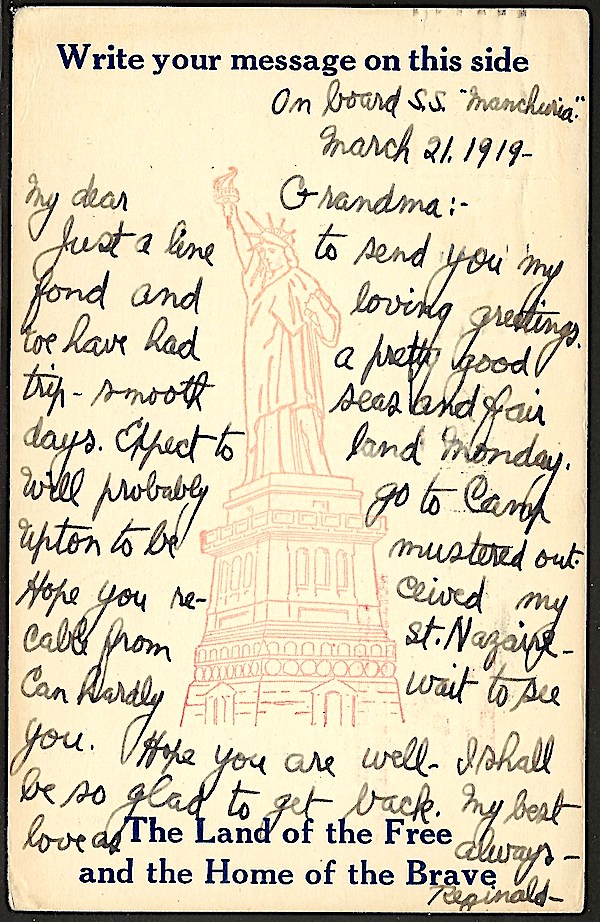 Write your message on this side
On board S.S. "Manchuria."
March 21. 1919-
My dear Grandma:-
Just a line to send you my
fond and loving greetings.
We have had a pretty good
trip- smooth seas and fair
days. Expect to land Monday.
Will probably go to Camp
Upton to be mustered out.
Hope you re- ceived my
cable from St. Nazaire-
Can hardly wait to see
you. Hope you are well- I shall
be so glad to get back. My best
love as always-
The Land of the Free
and the Home of the Brave
Reginald-